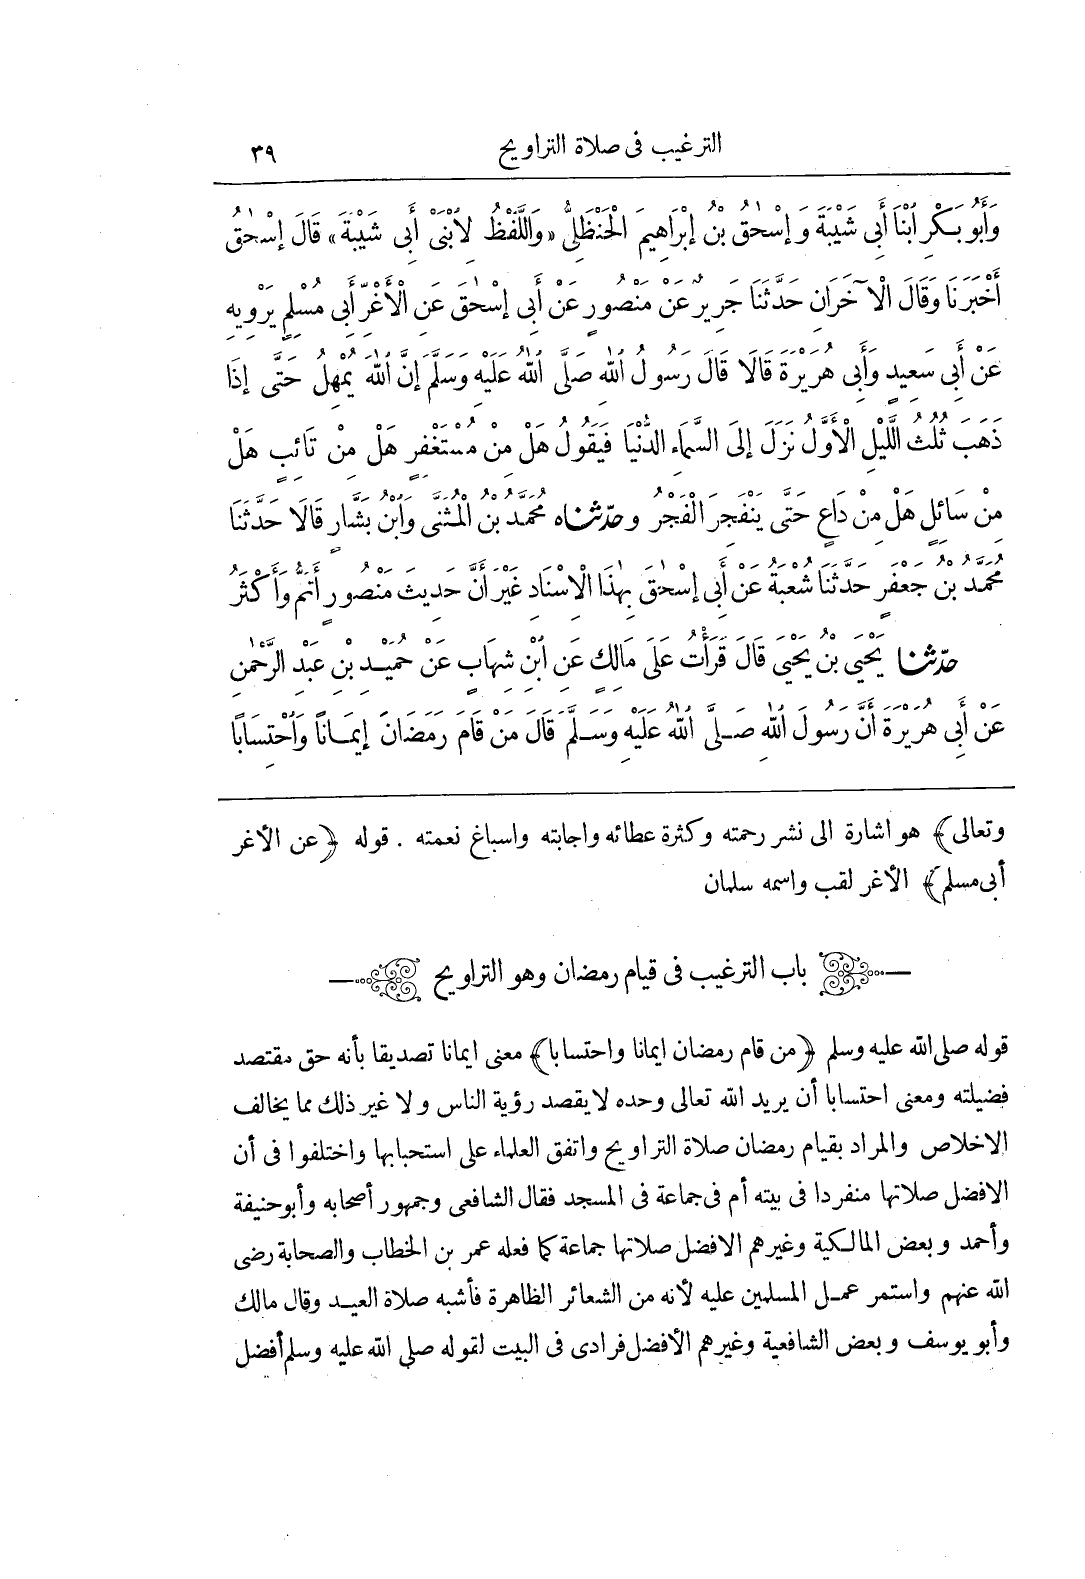 الترغيب فى صلاة التراويح ٣٩
وَأَبُو بَكْرِ ابْنَا أَبِى شَيْبَةَ وَإِسْحَقُ بْنُ إِبْرَاهِيمَ الْحَنْظَلِىُّ «وَاللَّفْظُ لِابْنَىْ أَبِى شَيْبَةَ» قَالَ إِسْحَقُ
أَخْبَرَنَا وَقَالَ الْآخَرَانِ حَدَّثَنَا جَرِيرٌ عَنْ مَنْصُورٍ عَنْ أَبِى إِسْحَقَ عَنِ الْأَغَرِّ أَبِى مُسْلِمٍ يَرْوِيهِ
عَنْ أَبِى سَعِيدٍ وَأَبِى هُرَيْرَةَ قَالَا قَالَ رَسُولُ اللهِ صَلَّى اللهُ عَلَيْهِ وَسَلَّمَ إِنَّ اللهَ يُمْهِلُ حَتَّى إِذَا
ذَهَبَ ثُلُثُ اللَّيْلِ الْأَوَّلُ نَزَلَ إِلَى السَّمَاءِ الدُّنْيَا فَيَقُولُ هَلْ مِنْ مُسْتَغْفِرٍ هَلْ مِنْ تَائِبٍ هَلْ
مِنْ سَائِلٍ هَلْ مِنْ دَاعٍ حَتَّى يَنْفَجِرَ الْفَجْرُ و حَدَّثَنَاه مُحَمَّدُ بْنُ الْمُثَنَّى وَابْنُ بَشَّارٍ قَالَا حَدَّثَنَا
مُحَمَّدُ بْنُ جَعْفَرٍ حَدَّثَنَا شُعْبَةُ عَنْ أَبِى إِسْحَقَ بِهَذَا الْإِسْنَادِ غَيْرَ أَنَّ حَدِيثَ مَنْصُورٍ أَتَمُّ وَأَكْثَرُ
حَدَّثَنَا يَحْيَى بْنُ يَحْيَى قَالَ قَرَأْتُ عَلَى مَالِكٍ عَنِ ابْنِ شِهَابٍ عَنْ حُمَيْدِ بْنِ عَبْدِ الرَّحْمَنِ
عَنْ أَبِى هُرَيْرَةَ أَنَّ رَسُولَ اللهِ صَلَّى اللهُ عَلَيْهِ وَسَلَّمَ قَالَ مَنْ قَامَ رَمَضَانَ إِيمَانًا وَاحْتِسَابًا
وتعالى﴾ هو اشارة الى نشر رحمته وكثرة عطائه واجابته واسباغ نعمته . قوله ﴿عن الأغر
أبى مسلم﴾ الأغر لقب واسمه سلمان
باب الترغيب فى قيام رمضان وهو التراويح
قوله صلى الله عليه وسلم ﴿من قام رمضان ايمانا واحتسابا﴾ معنى ايمانا تصديقا بأنه حق مقتصد
فضيلته ومعنى احتسابا أن يريد الله تعالى وحده لا يقصد رؤية الناس ولا غير ذلك مما يخالف
الاخلاص والمراد بقيام رمضان صلاة التراويح واتفق العلماء على استحبابها واختلفوا فى أن
الافضل صلاتها منفردا فى بيته أم فى جماعة فى المسجد فقال الشافعى وجمهور أصحابه وأبو حنيفة
وأحمد وبعض المالكية وغيرهم الافضل صلاتها جماعة كما فعله عمر بن الخطاب والصحابة رضى
الله عنهم واستمر عمل المسلمين عليه لأنه من الشعائر الظاهرة فأشبه صلاة العيد وقال مالك
وأبو يوسف وبعض الشافعية وغيرهم الأفضل فرادى فى البيت لقوله صلى الله عليه وسلم أفضل